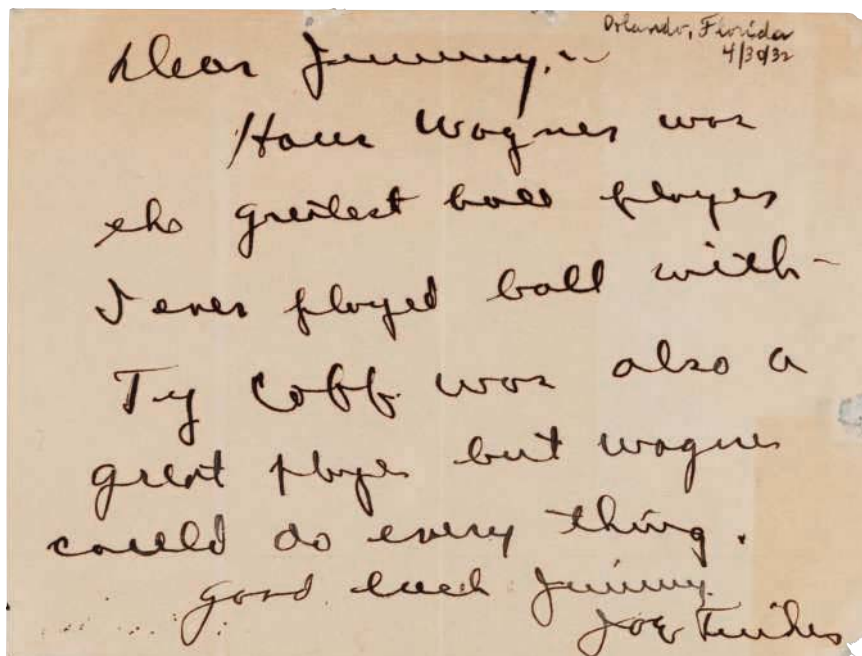 Orlando, Florida
4/30/32
Dear Jimmy,—
Hans Wagner was
the greatest ball player
I ever played ball with—
Ty Cobb was also a
great player but wagner
could do every thing.
good luck Jimmy
Joe Tinker